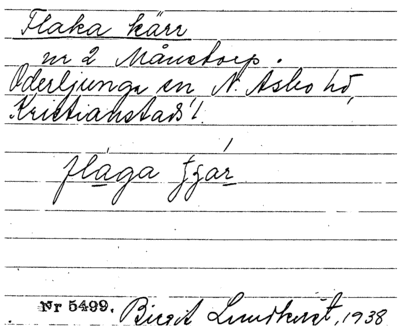 Flaka kärr
nr 2 Månstorp.
Oderljunga sn N. Asbo hd,
Kristianstads l.
flaga tjär
Nr 5499. Birgit Lundkvist, 1938